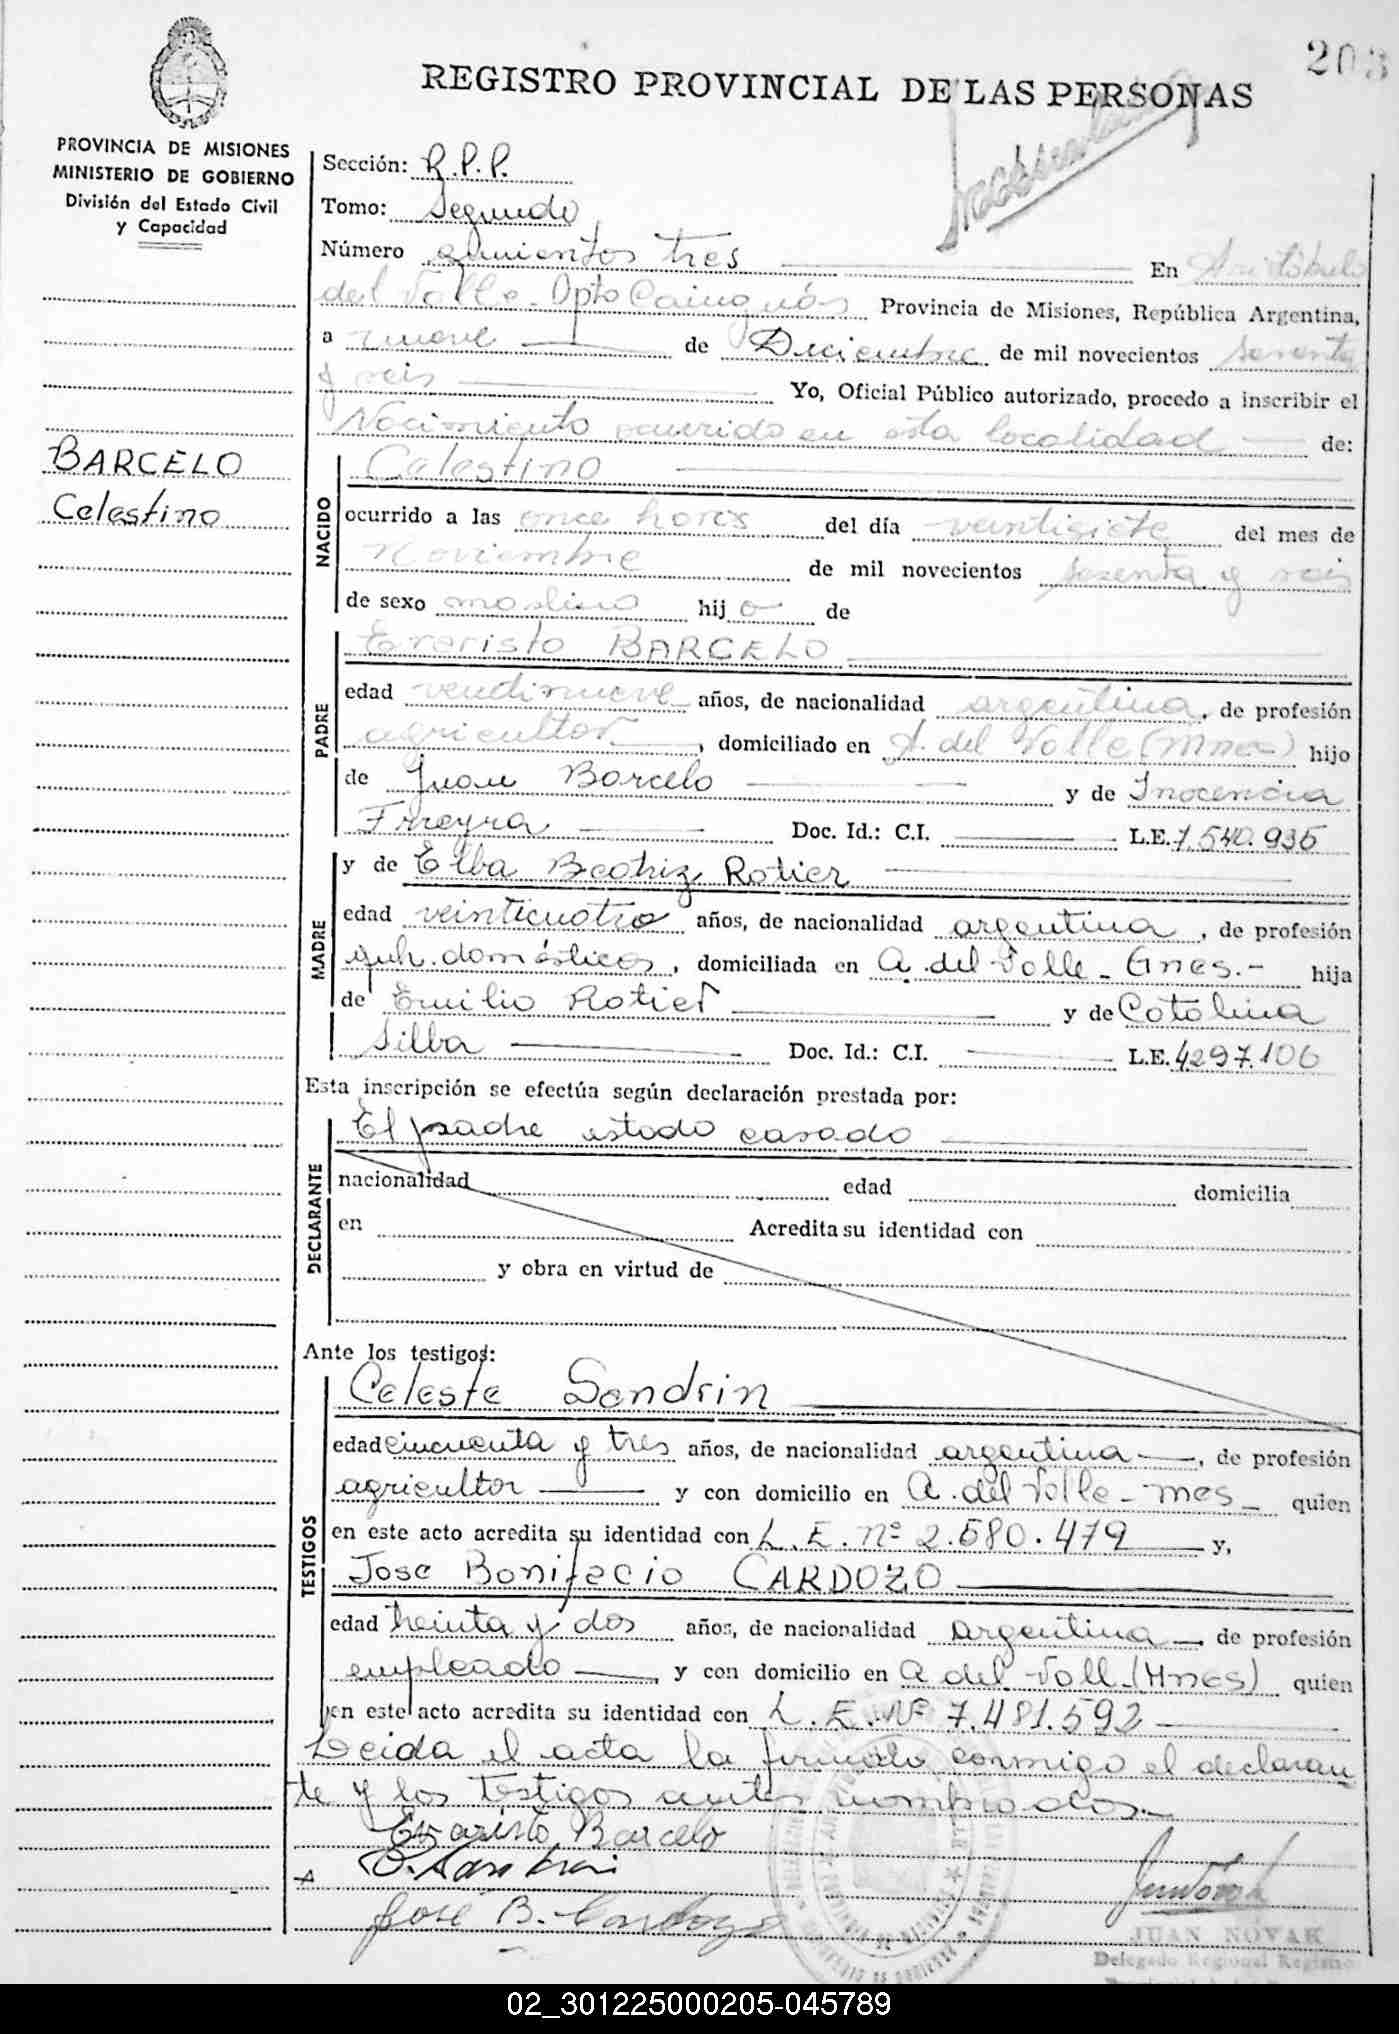 203
REGISTRO PROVINCIAL DE LAS PERSONAS
PROVINCIA DE MISIONES
MINISTERIO DE GOBIERNO
División del Estado Civil
y Capacidad
BARCELO
Celestino
Sección: R.P.P.
Tomo: Segundo
Número quinientos tres En Aristóbulo
del Valle - Dpto Cainguás Provincia de Misiones, República Argentina,
a nueve de Diciembre de mil novecientos sesenta
y seis Yo, Oficial Público autorizado, procedo a inscribir el
Nacimiento ocurrido en esta localidad de:
NACIDO
Celestino
ocurrido a las once horas del día veintisiete del mes de
Noviembre de mil novecientos sesenta y seis
de sexo maslino hijo de
PADRE
Evaristo BARCELO
edad veintinueve años, de nacionalidad argentina, de profesión
agricultor, domiciliado en A. del Valle (Mnes) hijo
de Juan Barcelo y de Inocencia
Frreyra Doc. Id.: C.I. L.E. 7.540.935
MADRE
y de Elba Beatriz Rotier
edad veinticuatro años, de nacionalidad argentina, de profesión
quh. domésticos, domiciliada en A. del Valle - Mnes.- hija
de Emilio Rotier y de Catalina
Silba Doc. Id.: C.I. L.E. 4297.106
Esta inscripción se efectúa según declaración prestada por:
DECLARANTE
El padre estado casado
nacionalidad edad domicilia
en Acredita su identidad con
y obra en virtud de
Ante los testigos:
TESTIGOS
Celeste Sandrin
edad cincuenta y tres años, de nacionalidad argentina, de profesión
agricultor y con domicilio en A. del Valle - mes quien
en este acto acredita su identidad con L.E. Nº 2.580.479 y,
Jose Bonifacio CARDOZO
edad treinta y dos años, de nacionalidad argentina de profesión
empleado, y con domicilio en A del Vall (Mnes) quien
en este acto acredita su identidad con L.E. Nº 7.481.592
Leida el acta la firman conmigo el declaran-
te y los testigos antes nombrados.-
Evaristo Barcelo
José B. Cardozo
JUAN NOVAK
Delegado Regional Registro
02_301225000205-045789